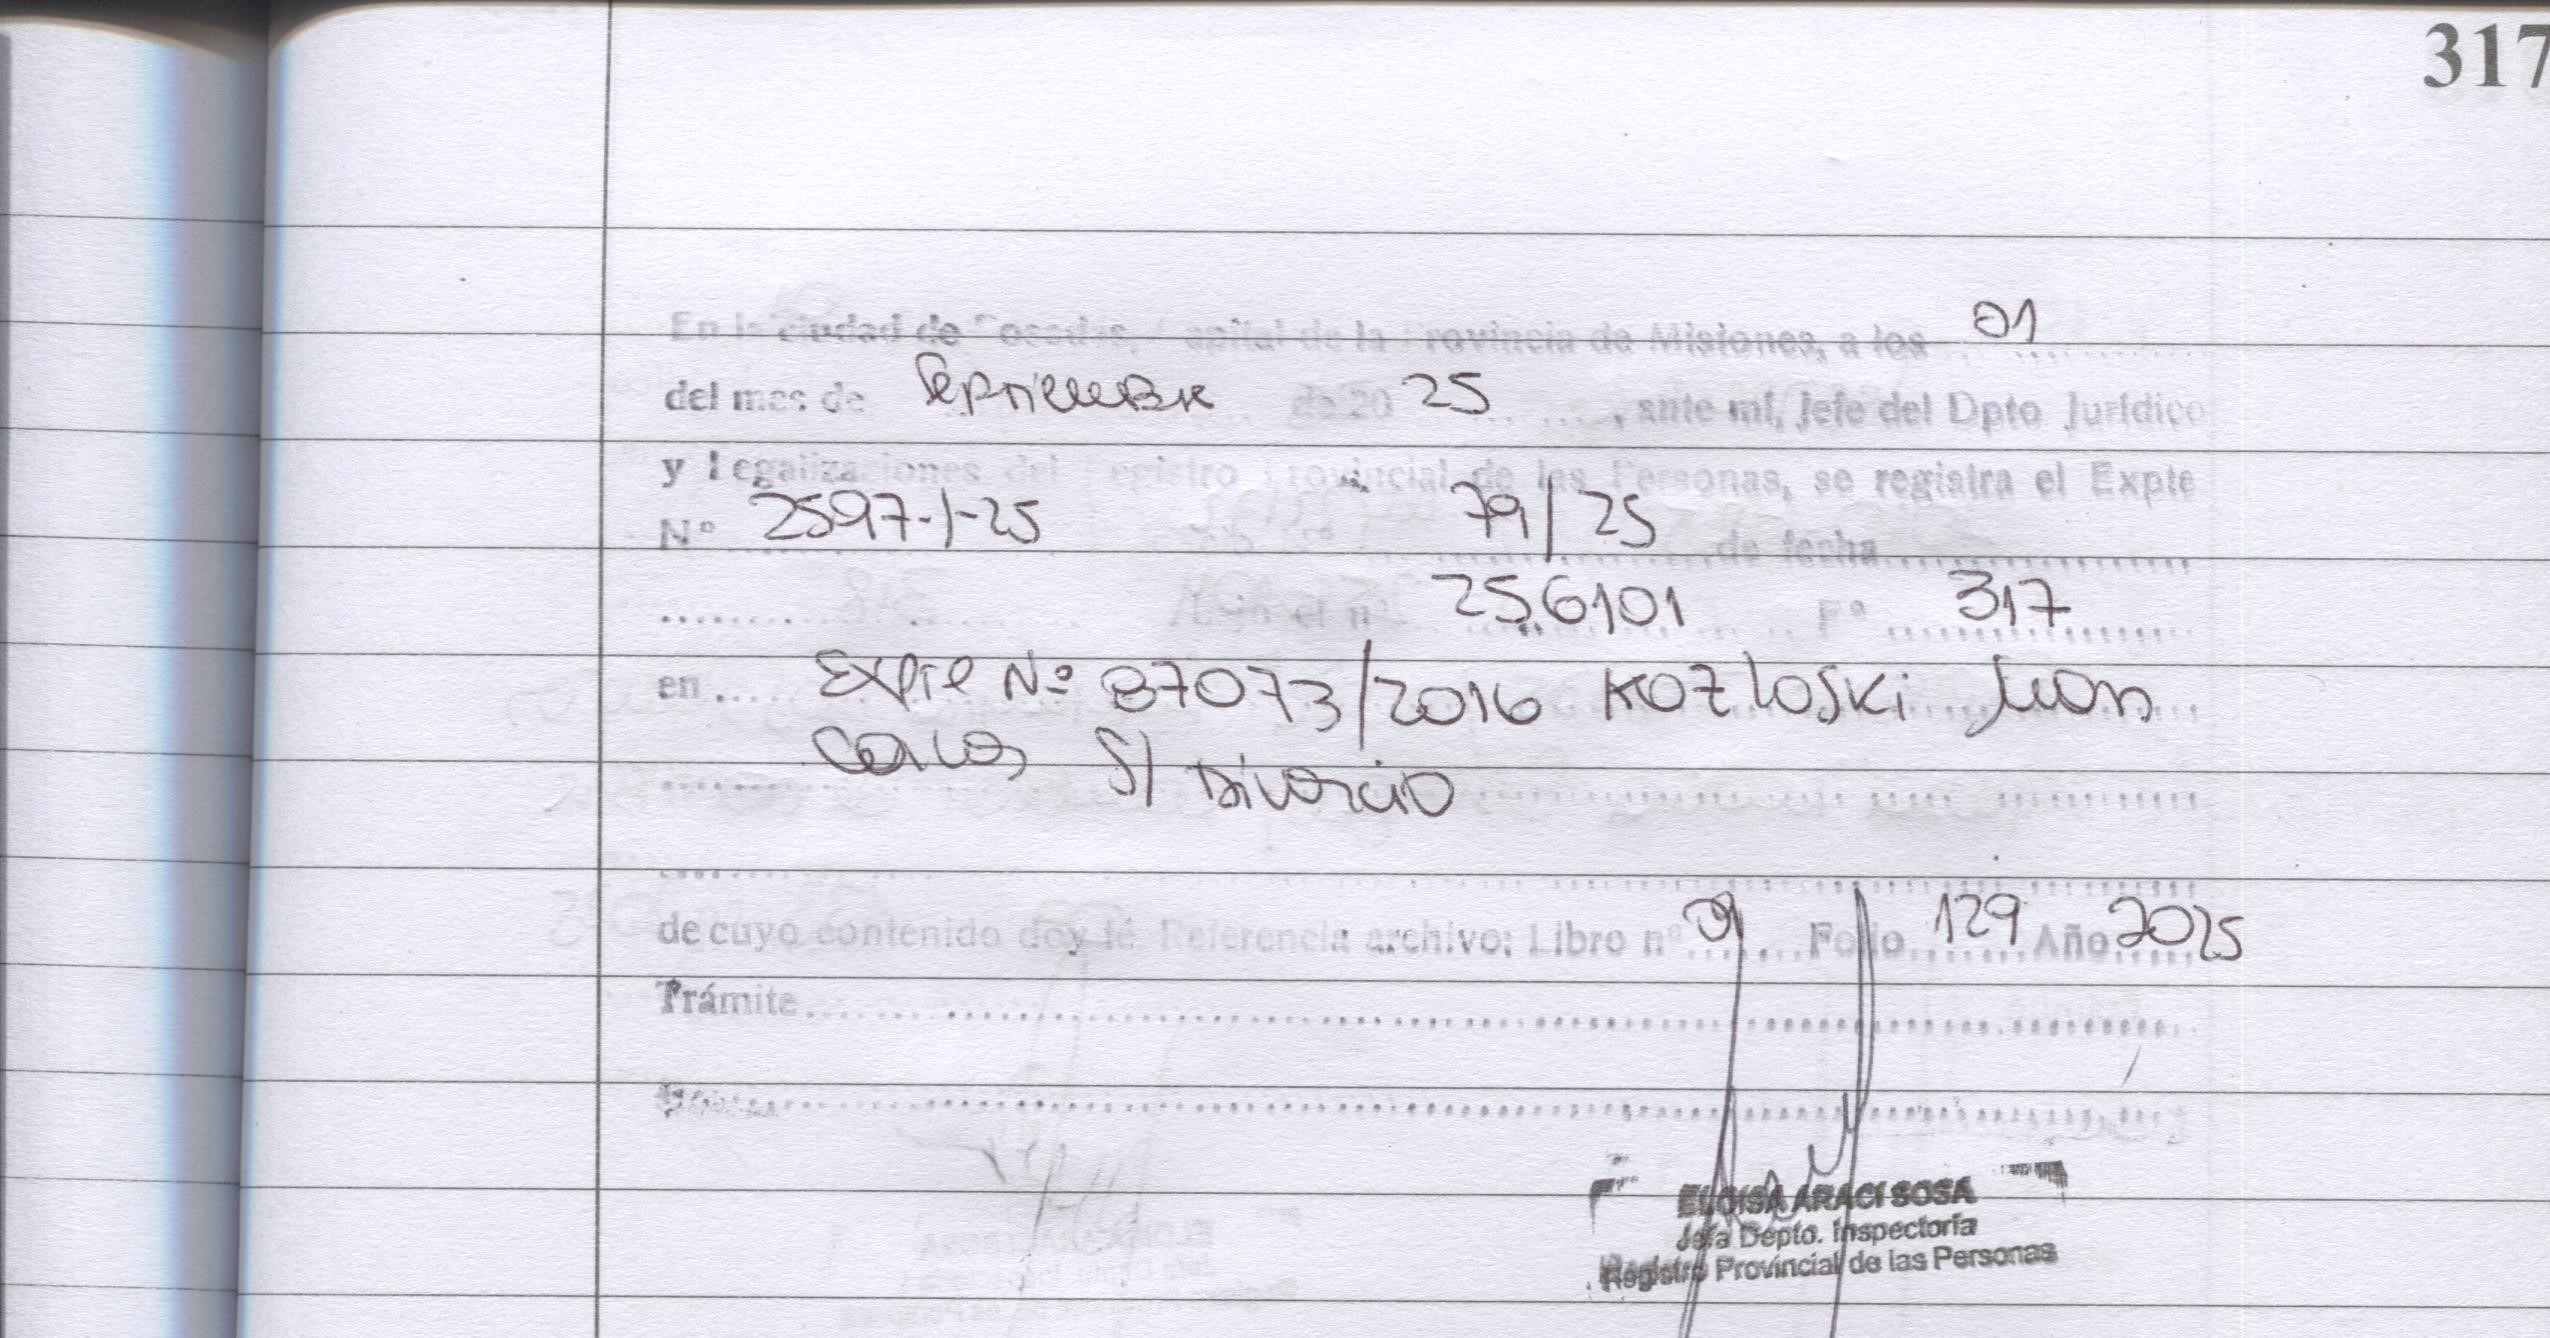 317
En la ciudad de Posadas, Capital de la Provincia de Misiones, a los 01
del mes de Septiembre de 20 25, ante mí, Jefe del Dpto Jurídico
y Legalizaciones del Registro Provincial de las Personas, se registra el Expte
Nº 2597-1-25 79/25 de fecha
256101 Fº 317
en Expte Nº 87073/2016 KOZLOSKi Juan
Carlos S/ Divorcio
de cuyo contenido doy fé Referencia archivo: Libro nº 01 Folio 129 Año 2025
Trámite
ELOISA ARACI SOSA
Jefa Depto. Inspectoría
Registro Provincial de las Personas